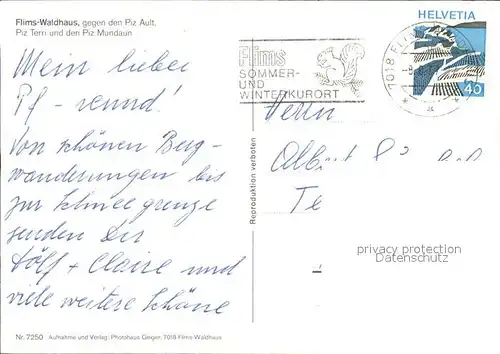 Flims-Waldhaus, gegen den Piz Ault,
Piz Tern und den Piz Mundaun
HELVETIA
Flims
SOMMER-
UND
WINTERKURORT
7018 FL
40
Mein lieber
Pf - reund!
Von schönen Berg-
wanderungen bis
zur Schneegrenze
senden Dir
Dölf + Claire und
viele weitere Schöne
Herrn
Alb
Te
Reproduktion verboten
privacy protection
Datenschutz
Nr. 7250 Aufnahme und Verlag: Photohaus Geiger, 7018 Flims-Waldhaus